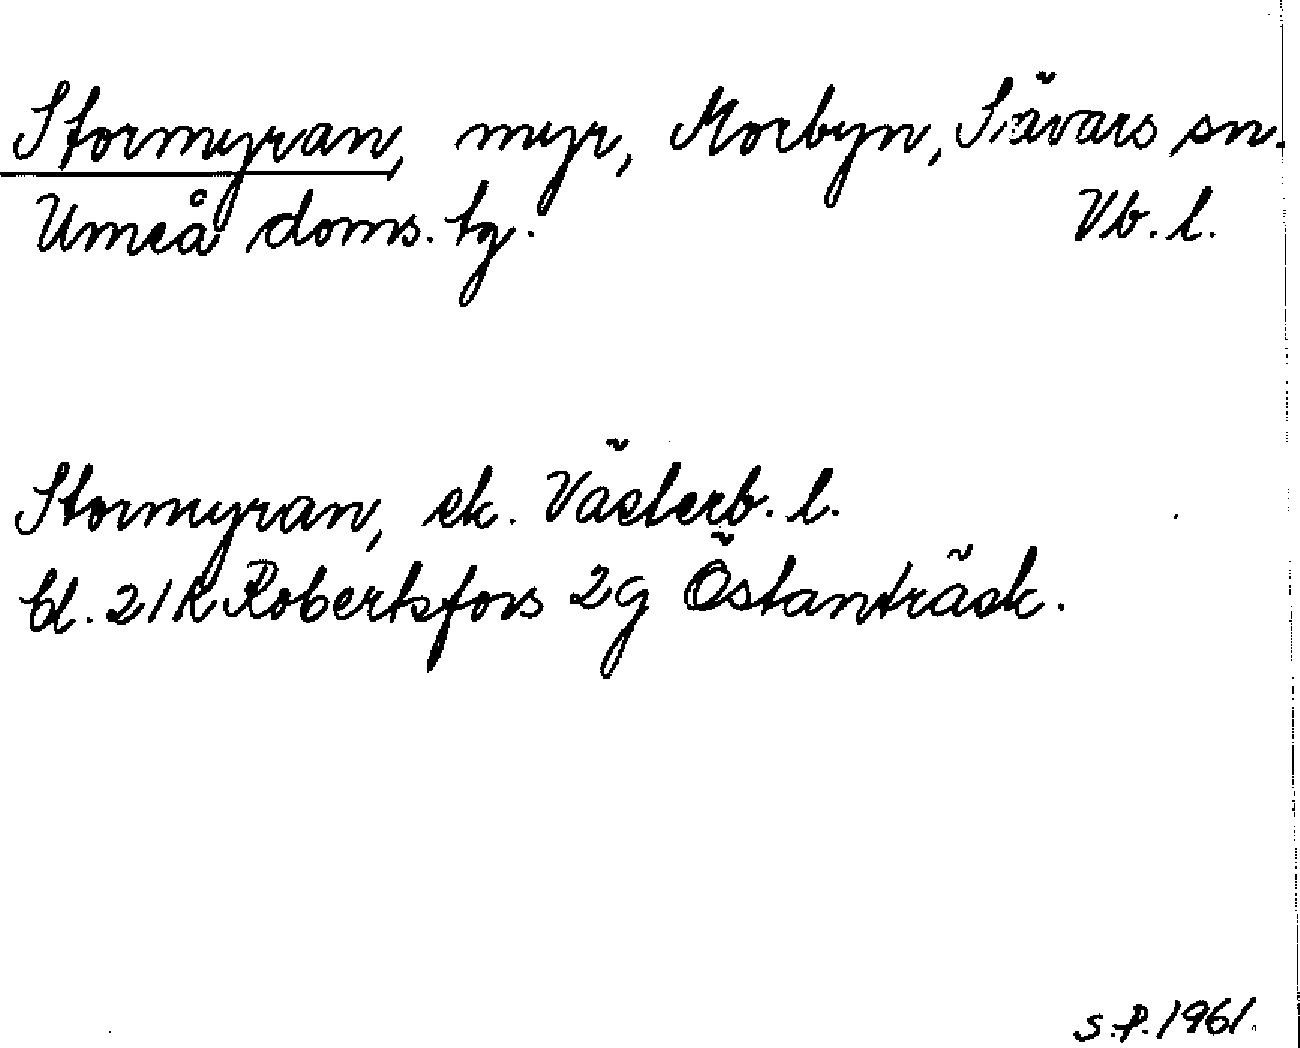 Stormyran, myr, Morbyn, Sävars sn.
Umeå doms. tg. Vb. l.
Stormyran, ek. Västerb. l.
bl. 21K Robertsfors 2g Östanträsk.
S.P. 1961.